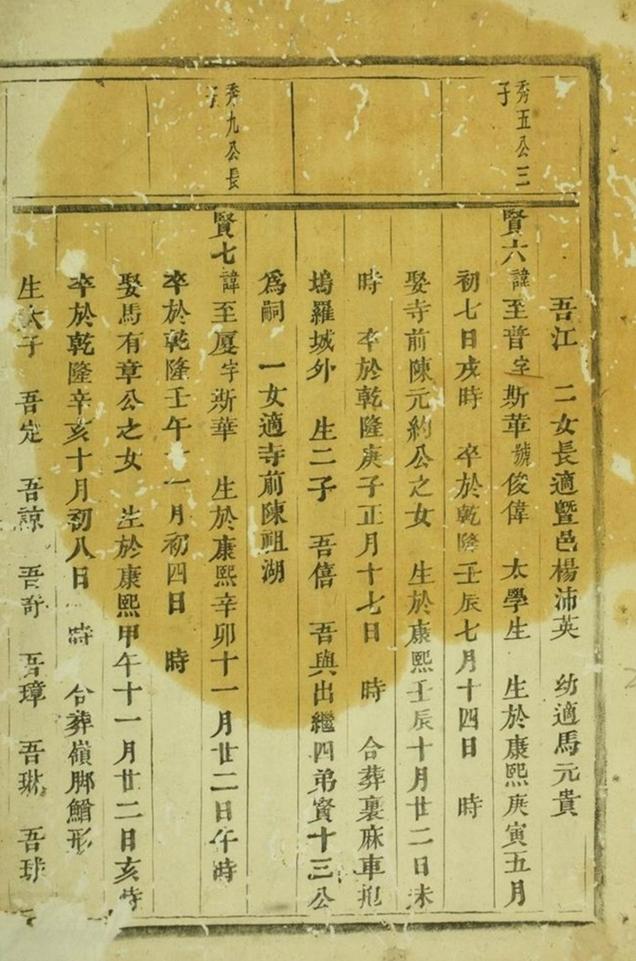 秀五公三
子
秀九公長
吾江　二女長適暨邑楊沛英　幼適馬元貴
賢六諱至普字斯華號俊偉　太學生　生於康熙庚寅五月
初七日戌時　卒於乾隆壬辰七月十四日　時
娶寺前陳元約公之女　生於康熙壬辰十月廿二日未
時　卒於乾隆庚子正月十七日　時　合葬裏麻車
塢羅城外　生二子　吾僖　吾與出繼四弟賢十三公
為嗣　一女適寺前陳祖湖
賢七諱至厦字斯華　生於康熙辛卯十一月廿二日午時
卒於乾隆壬午十一月初四日　時
娶馬有章公之女　生於康熙甲午十一月廿二日亥時
卒於乾隆辛亥十月初八日　時　合葬嶺脚鰌形
生六子　吾定　吾諒　吾奇　吾璋　吾琳　吾球